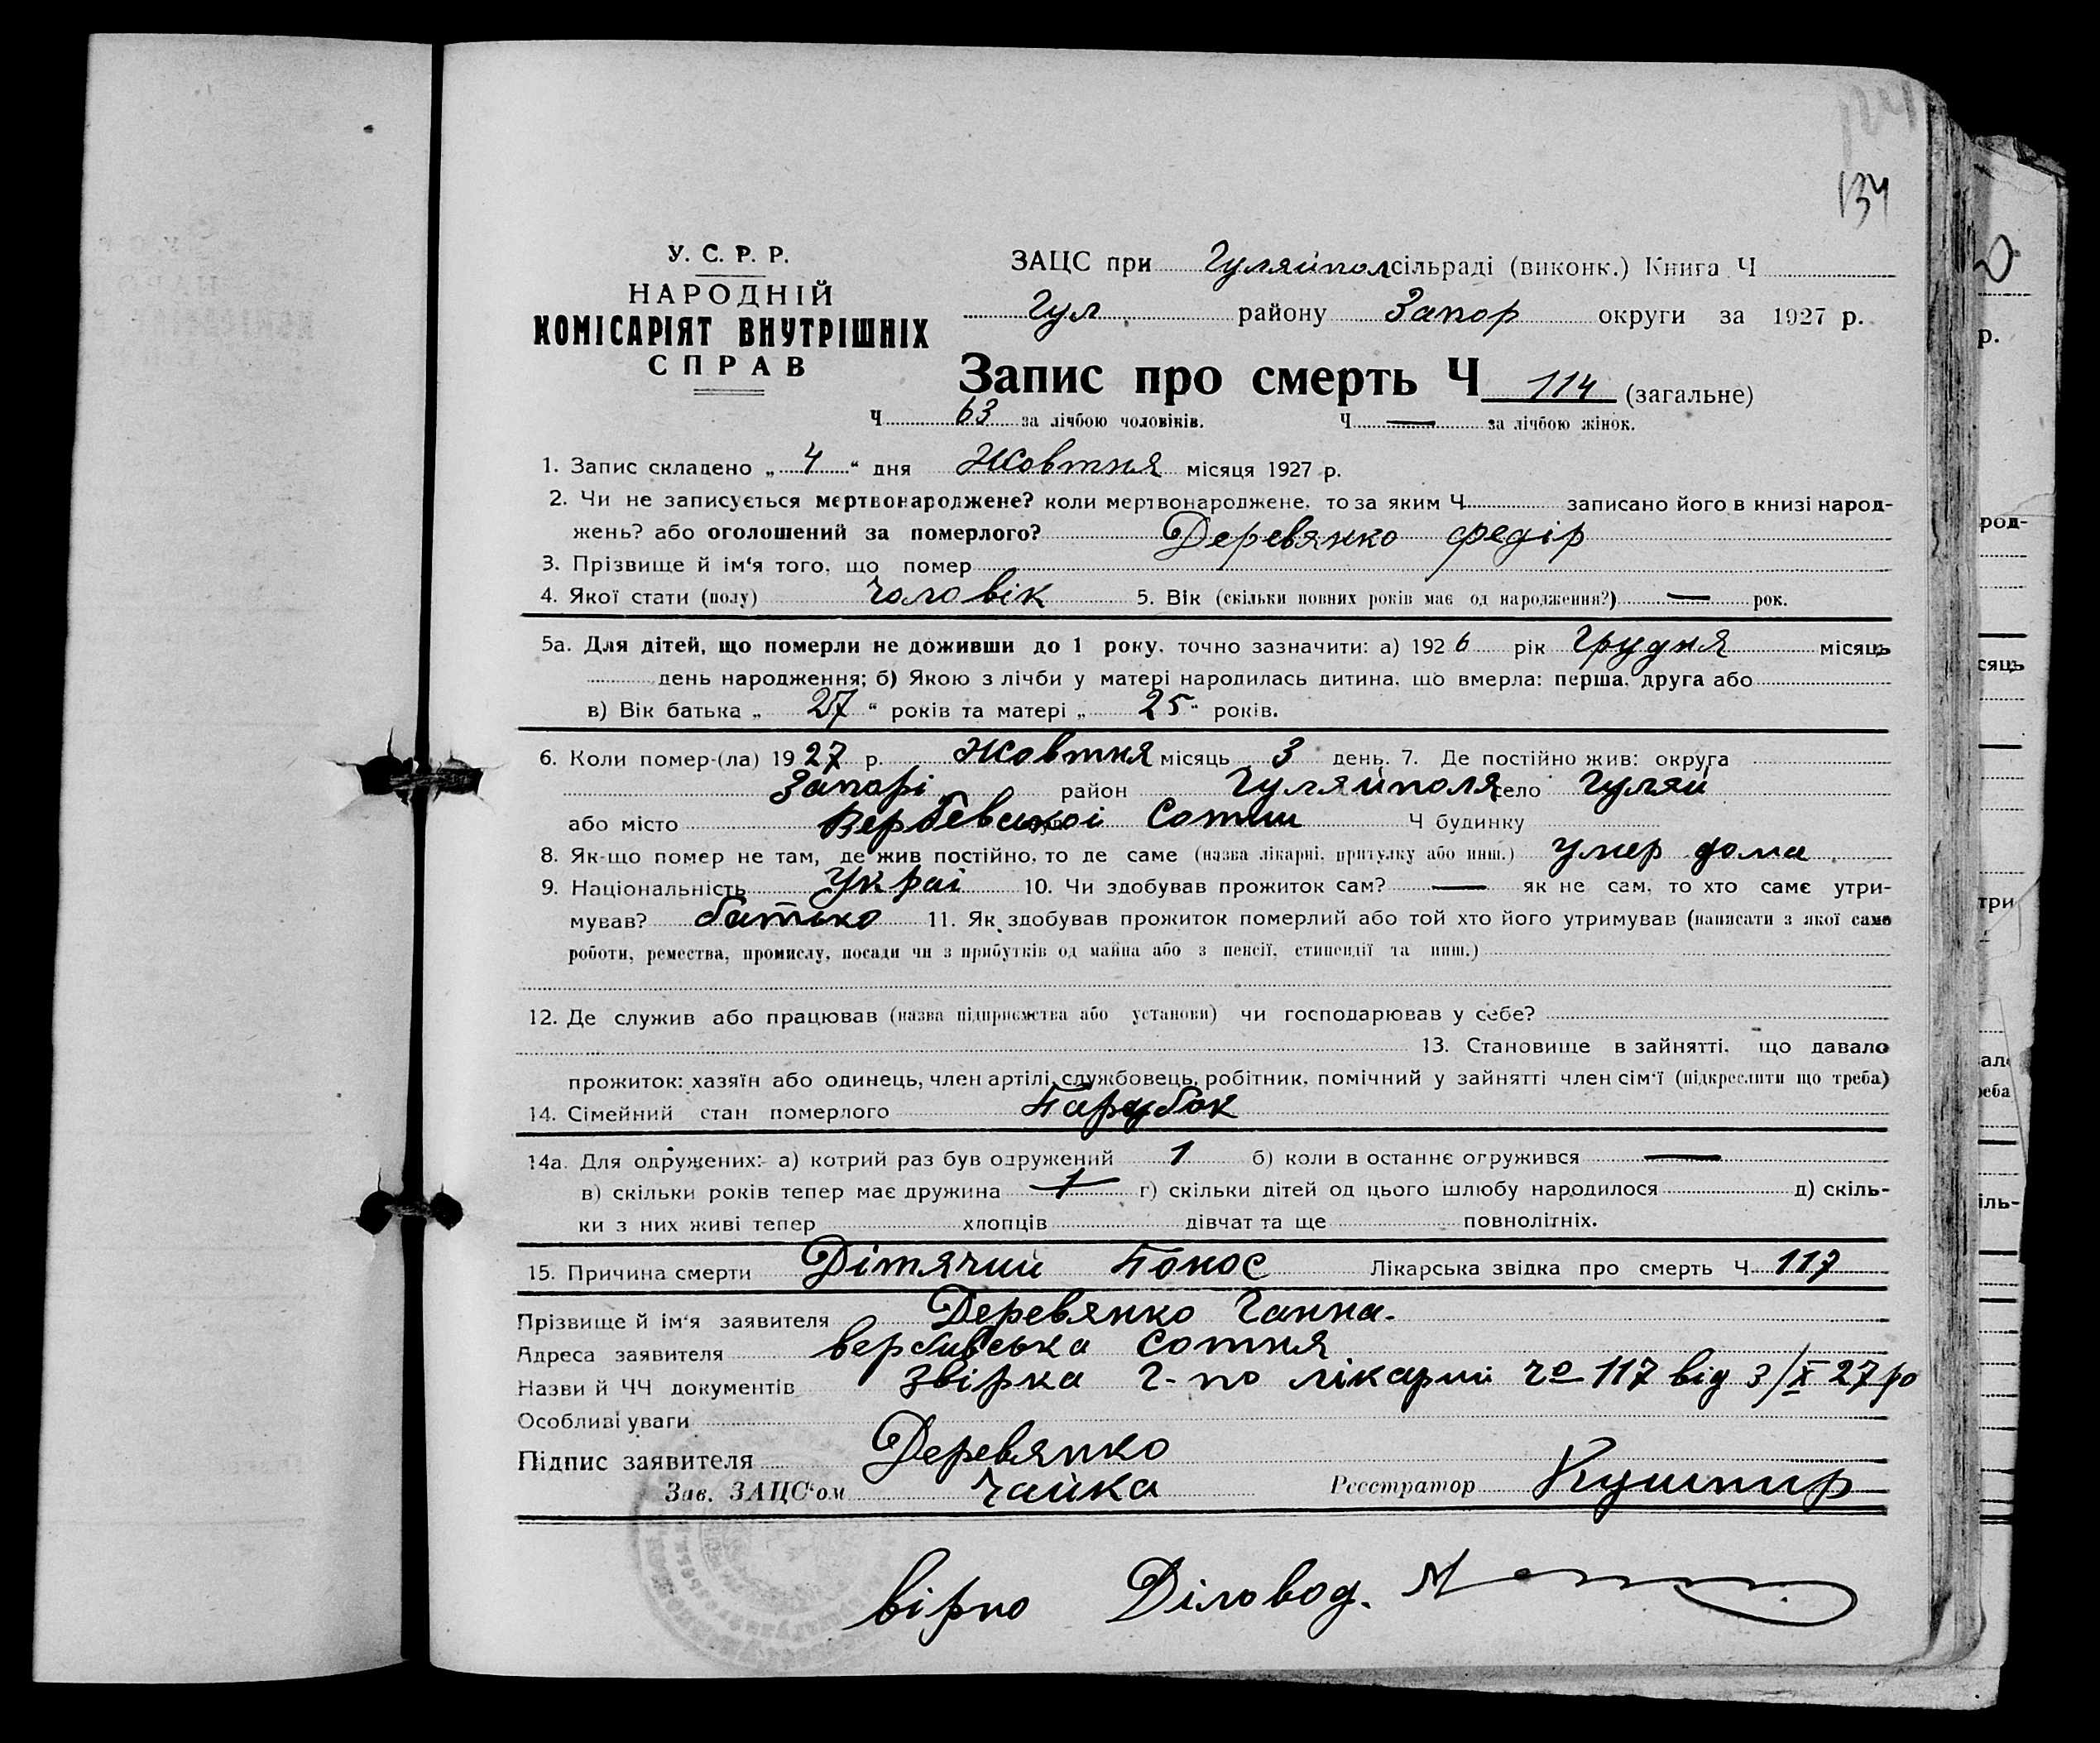 134
У. С. Р. Р.
НАРОДНІЙ
КОМІСАРІЯТ ВНУТРІШНІХ
СПРАВ
ЗАЦС при Гуляйпол сільраді (виконк.) Книга Ч
Гул району Запор округи за 1927 р.
Запис про смерть Ч 114 (загальне)
Ч 63 за лічбою чоловіків. Ч — за лічбою жінок.
1. Запис складено „ 4 “ дня Жовтня місяця 1927 р.
2. Чи не записується мертвонароджене? коли мертвонароджене, то за яким Ч записано його в книзі народ-
жень? або оголошений за померлого? Деревянко Федір
3. Прізвище й ім‘я того, що помер
4. Якої стати (полу) Чоловік 5. Вік (скільки повних років має од народження?) — рок.
5а. Для дітей, що померли не доживши до 1 року, точно зазначити: а) 1926 рік Грудня місяць
день народження; б) Якою з лічби у матері народилась дитина, що вмерла: перша, друга або
в) Вік батька „ 27 “ років та матері „ 25 “ років.
6. Коли помер-(ла) 1927 р. Жовтня місяць 3 день. 7. Де постійно жив: округа
Запорі район Гуляйполя село Гуляй
або місто Вербевської Сотни Ч будинку
8. Як-що помер не там, де жив постійно, то де саме (назва лікарні, притулку або инш.) умер дома
9. Національність Украі 10. Чи здобував прожиток сам? — як не сам, то хто саме утри-
мував? батько 11. Як здобував прожиток померлий або той хто його утримував (написати з якої само
роботи, ремества, промислу, посади чи з прибутків од майна або з пенсії, стипендії та инш.)
12. Де служив або працював (назва підприємства або установи) чи господарював у себе?
13. Становище в зайнятті, що давало
прожиток: хазяїн або одинець, член артілі, службовець, робітник, помічний у зайнятті член сім‘ї (підкреслити що треба)
14. Сімейний стан померлого Парубок
14а. Для одружених: а) котрий раз був одружений 1 б) коли в останнє одружився —
в) скільки років тепер має дружина 1 г) скільки дітей од цього шлюбу народилося д) скіль-
ки з них живі тепер хлопців дівчат та ще повнолітніх.
15. Причина смерти Дітячий Понос Лікарська звідка про смерть Ч 117
Прізвище й ім‘я заявителя Деревянко Ганна.
Адреса заявителя вербивська сотня
Назви й ЧЧ документів Звірка Г-по лікарні чо 117 від 3/X 27 ро
Особливі уваги
Підпис заявителя Деревянко
Зав. ЗАЦС‘ом Чайка Реєстратор Кушнир
вірно Діловод.